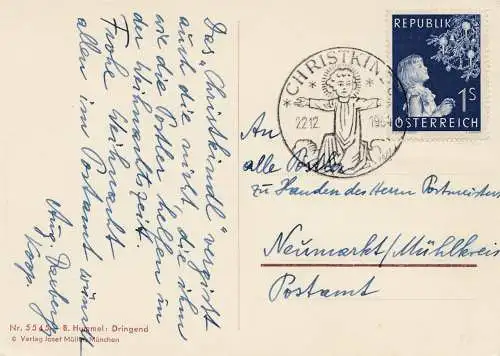 Das „Christkindl" vergisst
auch die nicht, die ihm
wie die Postler helfen in
der Weihnachtszeit.
Frohe Weihnacht
allen im Postamt wünscht
Aug.
Nr. 5545 B. Hummel: Dringend
© Verlag Josef Müller, München
REPUBLIK
1S
ÖSTERREICH
CHRISTKIN
22.12 195
An
alle Postler
zu Handen des Herrn Postmeisters
Neumarkt/Mühlkreis
Postamt